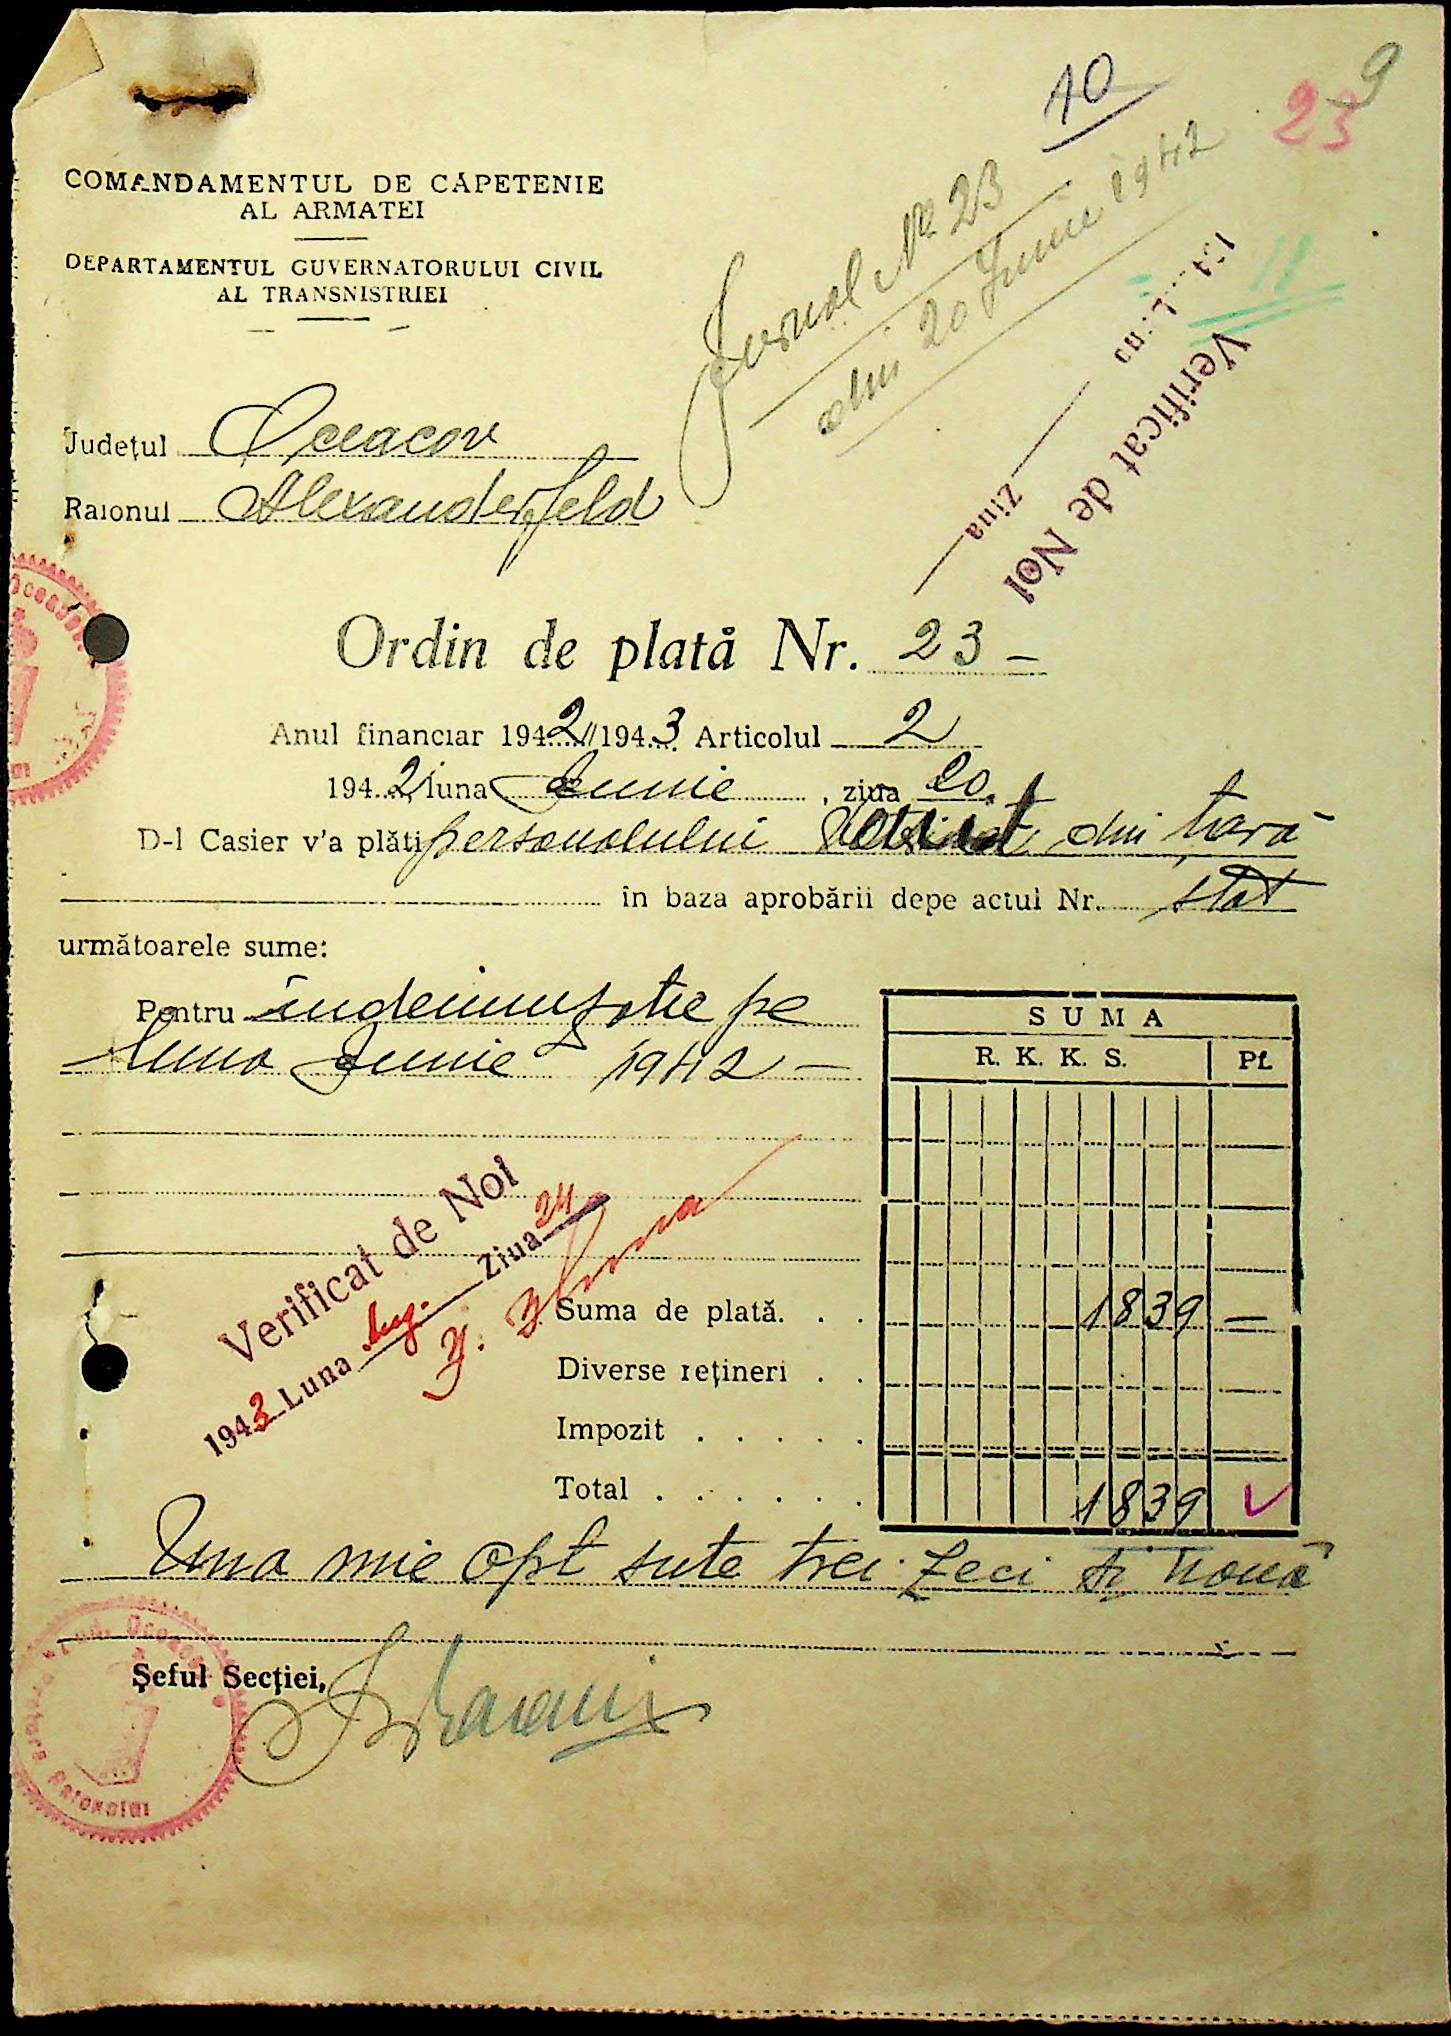 10
23
9
COMANDAMENTUL DE CĂPETENIE
AL ARMATEI
DEPARTAMENTUL GUVERNATORULUI CIVIL
AL TRANSNISTRIEI
Jurnal No 23
din 20 Junie 1942
18
Verificat de Noi
194 Luna
Ziua
Județul Oceacov
Raionul Alexanderfeld
Ordin de plată Nr. 23 –
Anul financiar 1942//1943 Articolul 2
1942, luna Junie, ziua 20.
D-l Casier v'a plăti personalului venit din țară
în baza aprobării depe actul Nr. stat
următoarele sume:
Pentru indemnizatie pe
luna Junie 1942 –
SUMA
R. K. K. S. Pf.
Verificat de Noi
1943 Luna Aug. Ziua 24
Suma de plată. . . 1839 –
Diverse rețineri . .
Impozit . . . . .
Total . . . . . . 1839
Una mie opt sute trei zeci și nouă
Șeful Secției,
Raionului